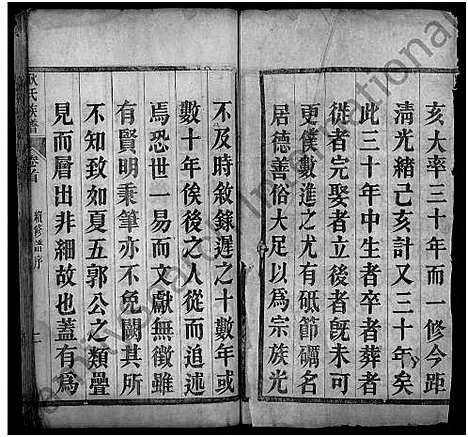 亥大率三十年而一修今距
清光緒己亥計又三十年矣
此三十年中生者卒者葬者
從者完娶者立後者既未可
更僕數進之尤有砥節礪名
居德善俗大足以爲宗族光
不及時敘錄遲之十數年或
數十年俟後之人從而追述
焉恐世一易而文獻無徵雖
有賢明秉筆亦不免闕其所
不知致如夏五郭公之類疊
見而層出非細故也蓋有爲
氏族譜 卷首 續修譜序 二